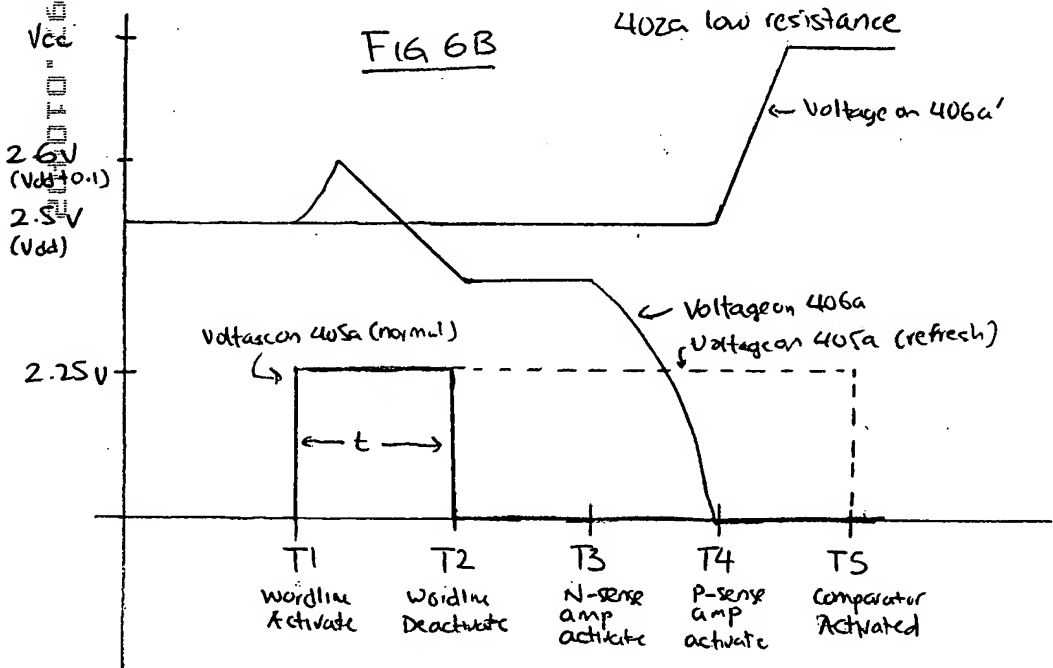 FIG 6B
402a low resistance
Vcc
Voltage on 406a'
2.6V
(Vdd+0.1)
2.5V
(Vdd)
Voltage on 406a
Voltage on 405a (refresh)
Voltage on 405a (normal)
2.25V
t
T1
Wordline
Activate
T2
Wordline
Deactivate
T3
N-sense
amp
activate
T4
P-sense
amp
activate
T5
Comparator
Activated